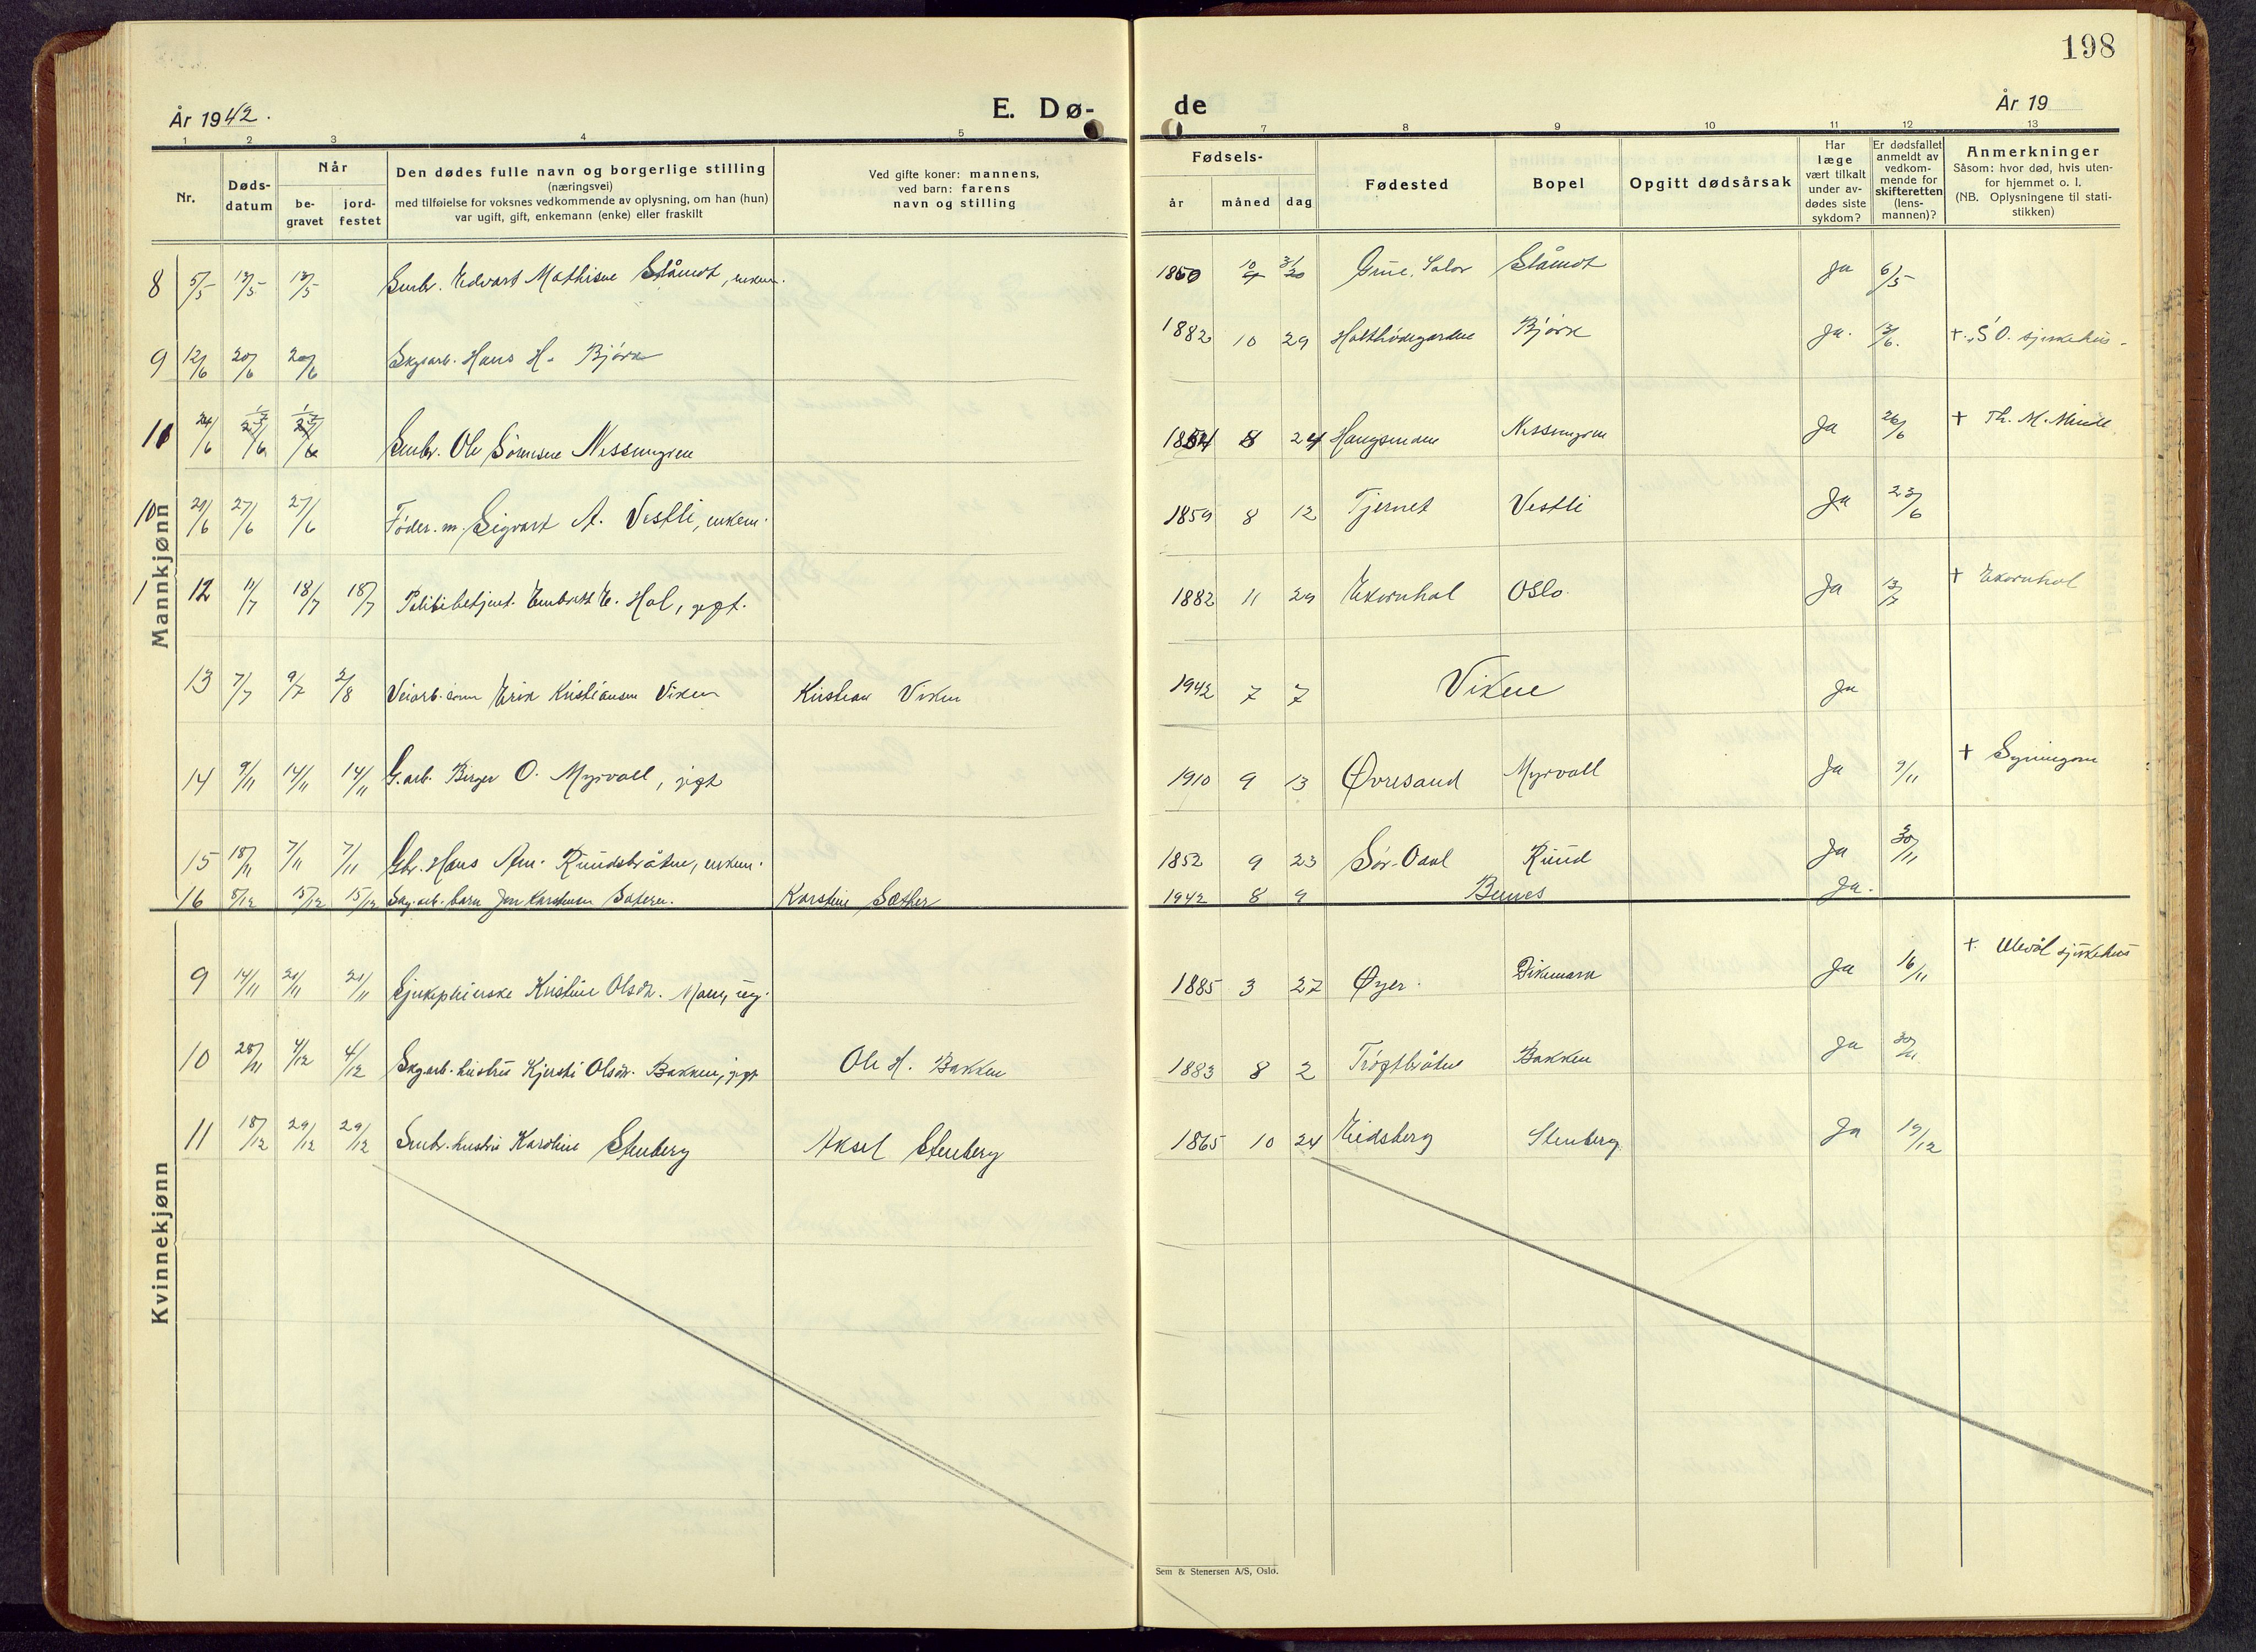 198
År 1942.
E. Dø-
de
År 19
1 2 3 4 5 7 8 9 10 11 12 13
Nr.
Døds-
datum
Når
be-
gravet
jord-
festet
Den dødes fulle navn og borgerlige stilling
(næringsvei)
med tilføielse for voksnes vedkommende av oplysning, om han (hun)
var ugift, gift, enkemann (enke) eller fraskilt
Ved gifte koner: mannens,
ved barn: farens
navn og stilling
Fødsels-
år måned dag
Fødested
Bopel
Opgitt dødsårsak
Har
læge
vært tilkalt
under av-
dødes siste
sykdom?
Er dødsfallet
anmeldt av
vedkom-
mende for
skifteretten
(lens-
mannen)?
Anmerkninger
Såsom: hvor død, hvis uten-
for hjemmet o. l.
(NB. Oplysningene til stati-
stikken)
Mannkjønn
8 5/5 13/5 13/5 Smbr. Edvart Mathisen Slåmot, enkem. 1860 10 31 Grue, Solør Slåmot Ja 6/5
9 12/6 20/6 20/6 Skogsarb. Hans H. Bjørk 1882 10 29 Bjørk Ja. 13/6. + S.Ø. sjukehus.
11 24/6 1/7 1/7 Smbr. Ole Sørensen 1854 8 24 Haugsmoen Ja 26/6 + Th. M. Minde
10 20/6 27/6 27/6 Føder.m. Sigvart A. Vestli, enkem. 1859 8 12 Tjernet Vestli Ja 23/6
12 11/7 18/7 18/7 Politibetjent. Embrett E. Hol, gift. 1882 11 29 Ekornhol Oslo. Ja 13/7 + Ekornhol
13 7/7 9/7 2/8 Veiarb. sønn Erik Kristiansen Viken Kristian Viken 1942 7 7 Viken Ja
14 9/11 14/11 14/11 G.arb. Birger O. Myrvoll, gift 1910 9 13 Øvresand Myrvoll Ja 9/11 +
15 18/11 7/11 7/11 Gbr. Hans Am. Rundsbråten, enkem. 1852 9 23 Sør-Odal Rund Ja 30/11
16 8/12 15/12 15/12 Skog.arb. barn Jan Karstensen Sæteren. Karstein Sæther 1942 8 9 Ja.
Kvinnekjønn
9 14/11 21/11 21/11 Sjukepleierske Kristine Olsdt. Moen, ug. 1885 3 27 Øyer. Dikemark Ja 16/11 + Ulevål sjukehus
10 28/11 4/12 4/12 Skogarb. hustru Kjersti Olsdt. Bakken, gift Ole H. Bakken 1883 8 2 Bakken Ja 30/11
11 18/12 29/12 29/12 Smbr. hustru Karoline Stenberg Aksel Stenberg 1865 10 24 Eidsberg Stenberg Ja 19/12
Sem & Stenersen A/S, Oslo.